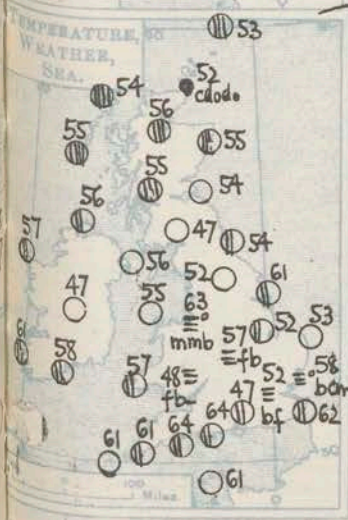 TEMPERATURE,
WEATHER,
SEA.
53
54
52
cdod.
55
56
55
55
54
56
57
47
54
56
52
61
47
55
63
mmb
57
fb
52
53
58
57
48
fb
47
52
bf
58
bcm
62
64
64
61
61
61
50
100
Miles
0